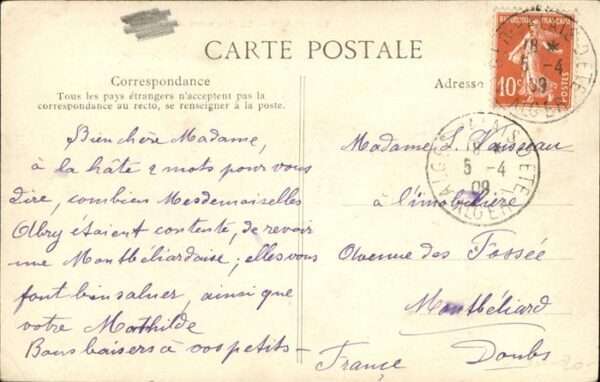 CARTE POSTALE
Correspondance
Tous les pays étrangers n'acceptent pas la
correspondance au recto, se renseigner à la poste.
Adresse
RÉPUBLIQUE FRANÇAISE
10c
POSTES
18 *
5 -4
09
ALGER
5 -4
09
ALGER
Bien chère Madame,
à la hâte 2 mots pour vous
dire, combien Mesdemoiselles
Abry étaient contente, de revoir
une Montbéliardaise; elles vous
font bien saluer, ainsi que
votre Mathilde
Bons baisers à vos petits-
Madame L.
à l'imobilière
Avenue des Fossée
Montbéliard
Doubs
France